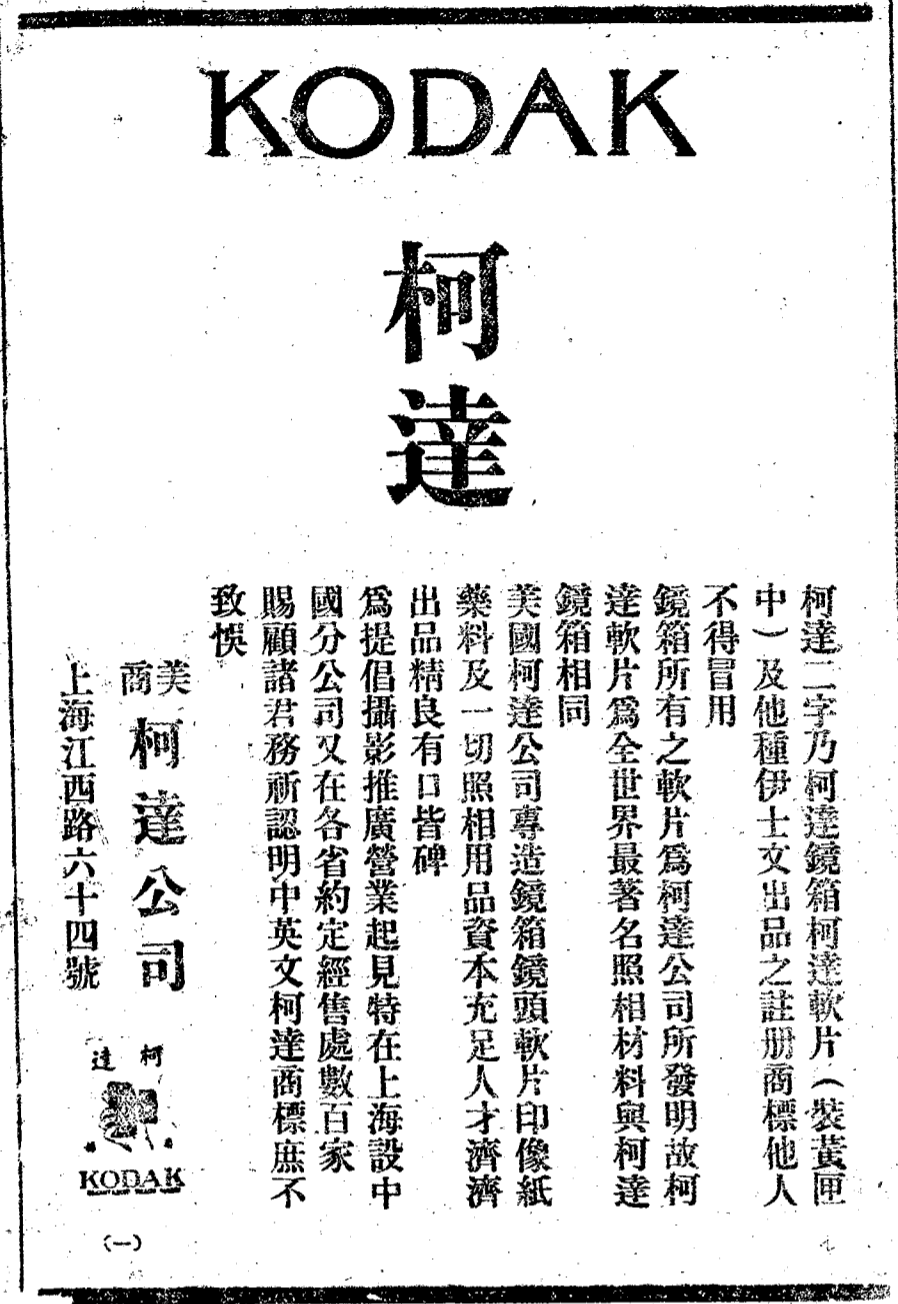 KODAK
柯達
柯達二字乃柯達鏡箱柯達軟片（裝黃匣
中）及他種伊士文出品之註册商標他人
不得冒用
鏡箱所有之軟片爲柯達公司所發明故柯
達軟片爲全世界最著名照相材料與柯達
鏡箱相同
美國柯達公司專造鏡箱鏡頭軟片印像紙
藥料及一切照相用品資本充足人才濟濟
出品精良有口皆碑
爲提倡攝影推廣營業起見特在上海設中
國分公司又在各省約定經售處數百家
賜顧諸君務祈認明中英文柯達商標庶不
致悞
美商
柯達公司
上海江西路六十四號
柯達
KODAK
（一）